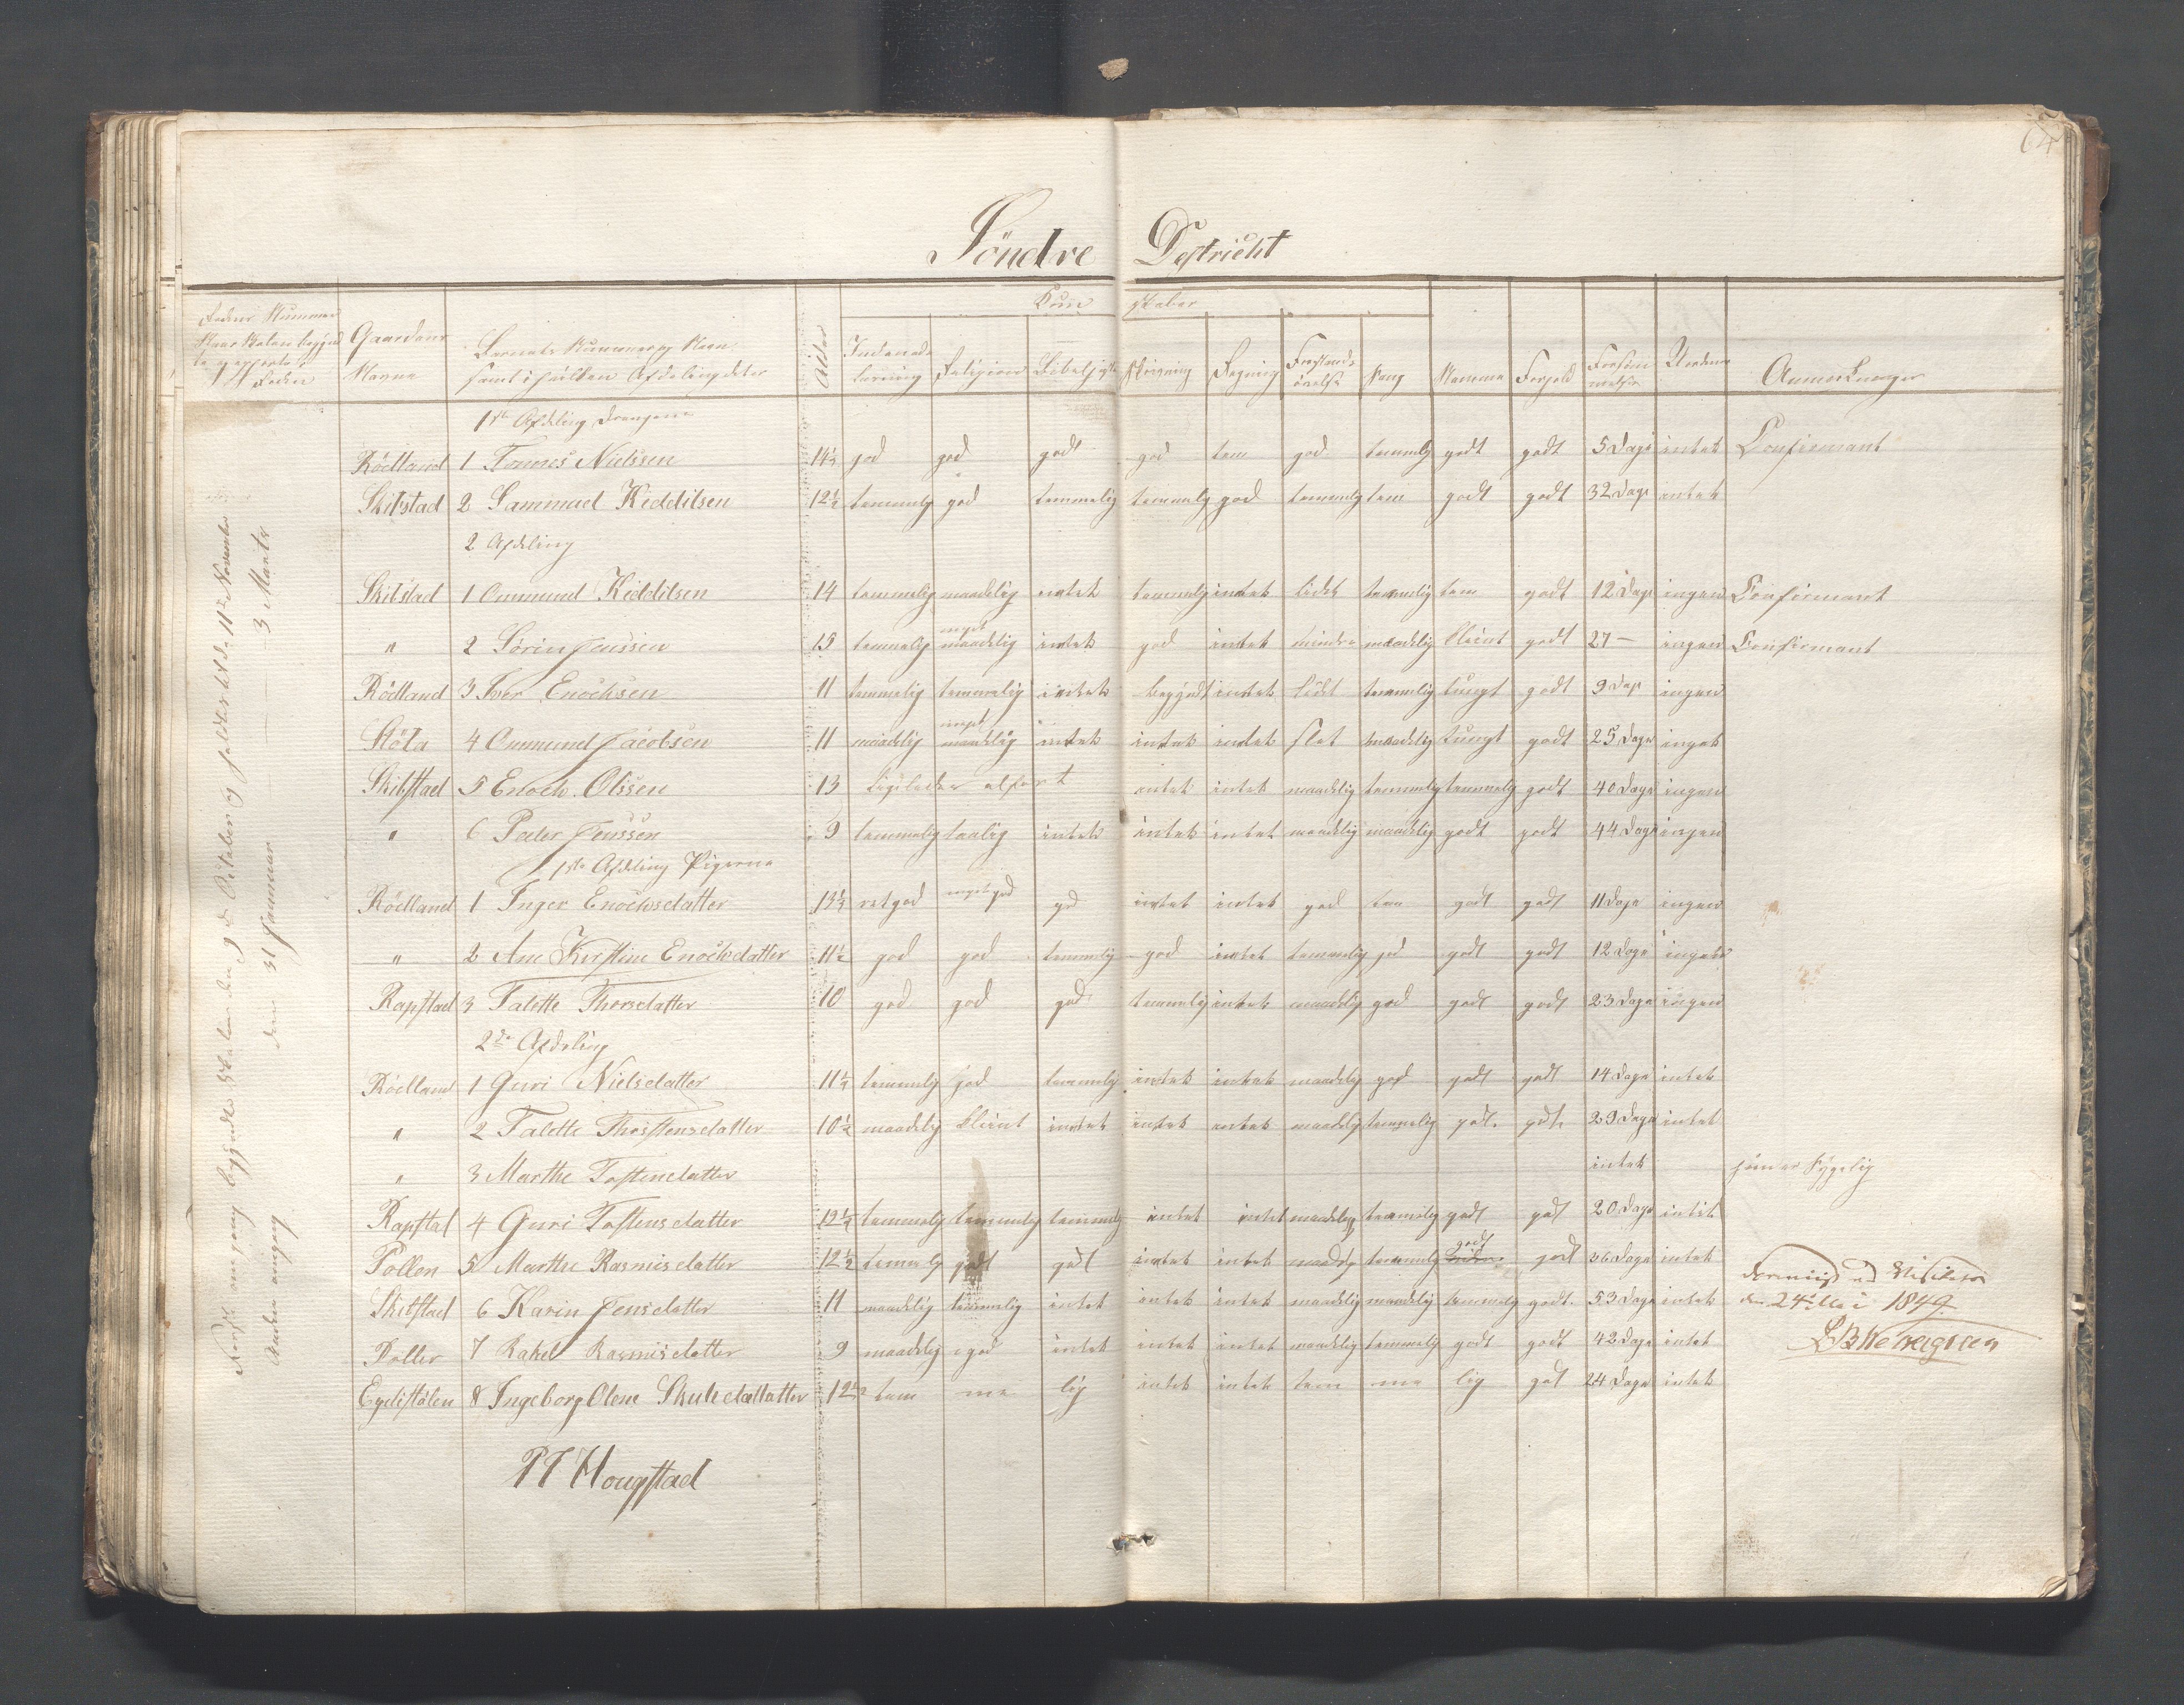 64
Söndre Destricht
Kund skaber
Gaardens Navne
Barnets Nummer og Navn samt i hvilken Afdeling deter
Alder
Indenadslæsning
Religion
Skrivning
Regning
Forstands øvelse
Sang
Nemme
Forhold
Forsømmelse
Anmerkninger
Første omgang begyndte Skolen den 9de October og holdtes til de 11te November
Anden omgang den 31 Januar — 3 Marts
1ste Afdeling Drengene
Rödland 1 Tonnes Nielssen 14½ god god godt god tem god temmelig godt godt 5 Dage intet Confirmant
Skilstad 2 Sammuel Kiddilsen 12½ temmelig god temmelig temmelig god temmelig tem godt godt 32 Dage intet
2 Afdeling
Skilstad 1 Ommund Kiddilsen 14 temmelig maadelig intet temmelig intet lidet temmelig tem godt 12 Dage ingen Confirmant
" 2 Sörin Jenssen 15 temmelig meget maadelig intet god intet mindre maadelig Kleint godt 27 — ingen Confirmant
Rödland 3 Iver Enochsen 11 temmelig temmelig intet begyndt intet lidet temmelig tungt godt 9 Dage ingen
Stöla 4 Ommund Jacobsen 11 maadelig meget maadelig intet intet intet slet maadelig tungt godt 25 Dage ingen
Skilstad 5 Enoch Olssen 13 intet intet maadelig temmelig temmelig godt 40 Dage ingen
" 6 Peder Jenssen 9 temmelig taalig intet intet intet maadelig maadelig godt godt 44 Dage ingen
1ste Afdeling Pigerne
Rödland 1 Inger Enochsdatter 13½ ret god meget god god intet intet god tem godt godt 11 Dage ingen
" 2 Ane Kirstine Enochdatter 11½ god god temmelig god intet temmelig god godt godt 12 Dage ingen
Rapstad 3 Talette Thorsdatter 10 god god god temmelig intet maadelig god godt godt 23 Dage ingen
2de Afdeling
Rödland 1 Guri Nielsdatter 11½ temmelig god temmelig intet intet maadelig god godt godt 14 Dage intet
" 2 Talette Thorstensdatter 10½ maadelig Kleint intet intet intet maadelig temmelig godt godt 29 Dage intet
" 3 Marthe Tostendatter intet hun er sygelig
Rapstad 4 Guri Tostensdatter 12½ temmelig temmelig temmelig intet intet maadelig temmelig godt godt 20 Dage intet
Pollen 5 Marthe Rasmisdatter 12½ temmelig godt godt intet intet maadelig temmelig godt godt 36 Dage intet
Skilstad 6 Karin Jensdatter 11 maadelig temmelig intet intet intet maadelig maadelig temmelig godt 53 Dage intet
Poller 7 Rakel Rasmisdatter 9 maadelig god intet intet intet maadelig temmelig godt godt 42 Dage intet
Egelistölen 8 Ingeborg Olene Skulesdatter 12½ tem me lig intet intet tem me lig godt 24 Dage intet
Foreviist ved Visitatsen
den 24de Mai 1849.
P T Hougstad